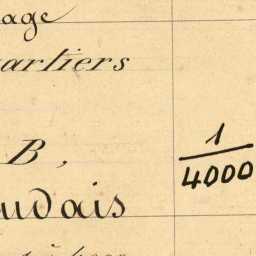 age
artiers
B,
1/4000
udais